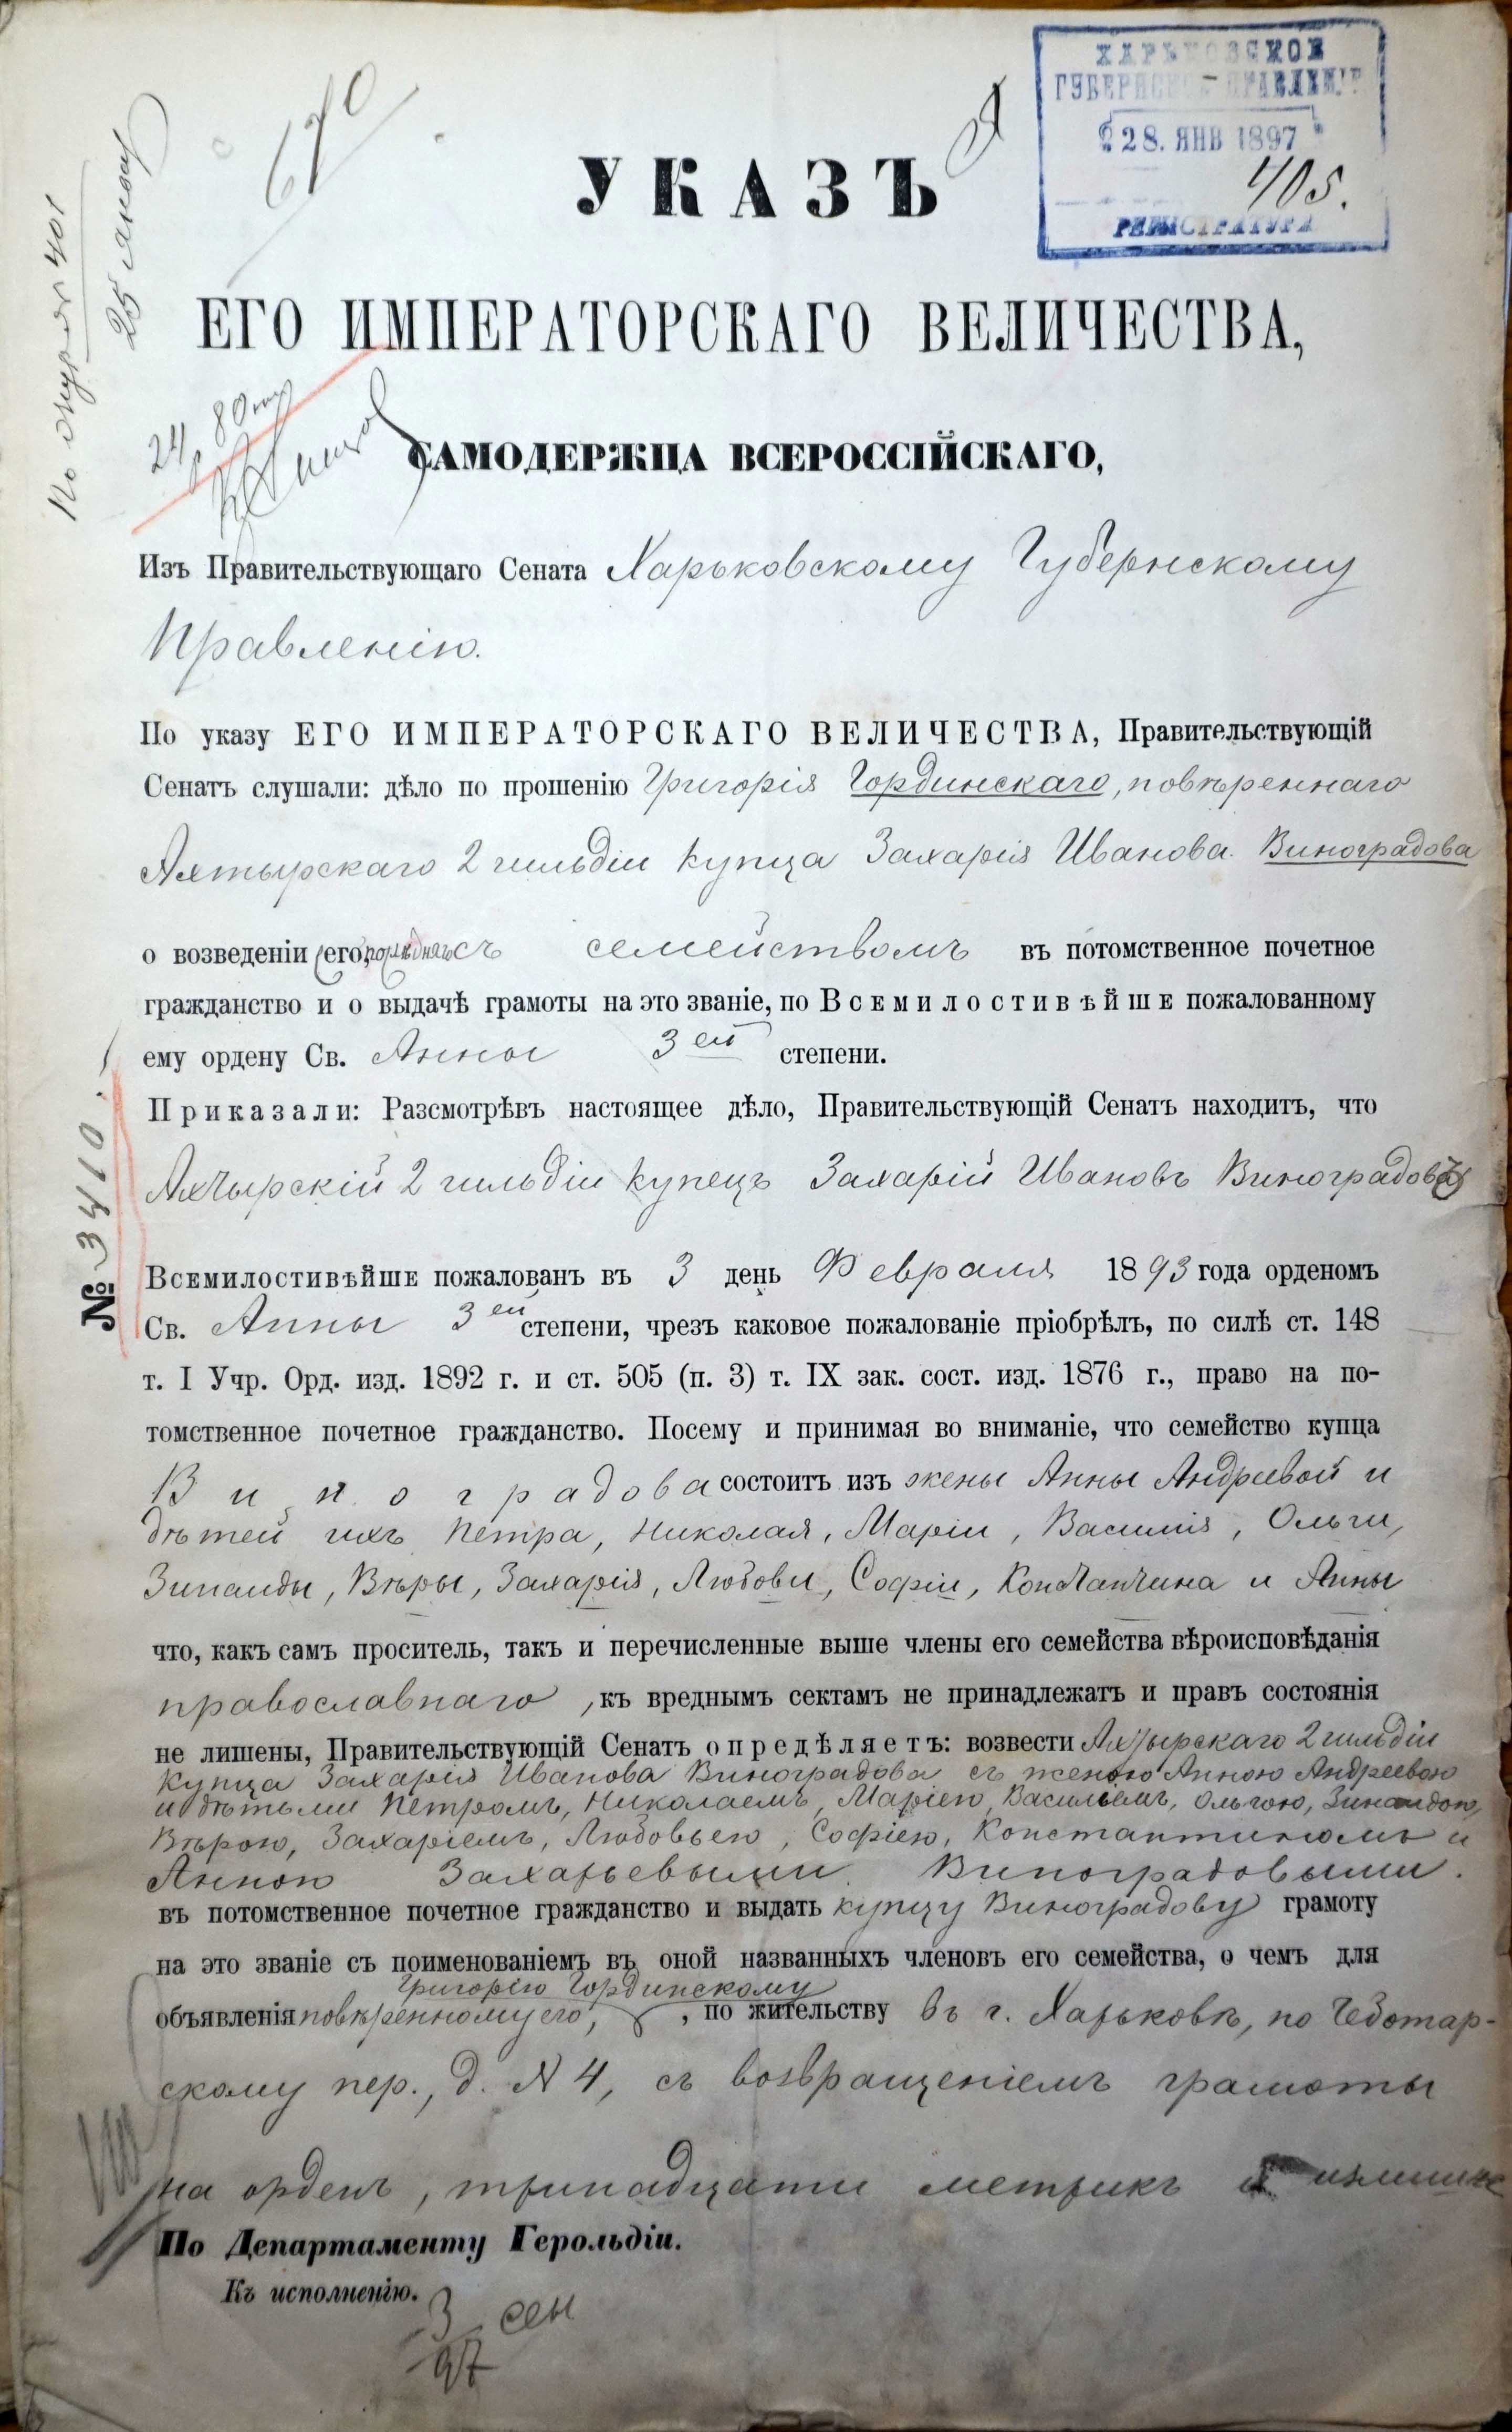 ХАРЬКОВСКОЕ
ГУБЕРНСКОЕ ПРАВЛЕНІЕ
28. ЯНВ 1897
405.
РЕГИСТРАТУРА
670
401
25
УКАЗЪ
ЕГО ИМПЕРАТОРСКАГО ВЕЛИЧЕСТВА,
САМОДЕРЖЦА ВСЕРОССІЙСКАГО,
Изъ Правительствующаго Сената Харьковскому Губернскому
Правленію.
По указу ЕГО ИМПЕРАТОРСКАГО ВЕЛИЧЕСТВА, Правительствующій
Сенатъ слушали: дѣло по прошенію Григорія Гординскаго, повѣреннаго
Ахтырскаго 2 гильдіи купца Захарія Иванова Виноградова
о возведеніи (его) послѣдняго съ семействомъ въ потомственное почетное
гражданство и о выдачѣ грамоты на это званіе, по Всемилостивѣйше пожалованному
ему ордену Св. Анны 3ей степени.
Приказали: Разсмотрѣвъ настоящее дѣло, Правительствующій Сенатъ находитъ, что
Ахтырскій 2 гильдіи купецъ Захарій Ивановъ Виноградовъ
№ 3410.
Всемилостивѣйше пожалованъ въ 3 день Февраля 1893 года орденомъ
Св. Анны 3ей степени, чрезъ каковое пожалованіе пріобрѣлъ, по силѣ ст. 148
т. I Учр. Орд. изд. 1892 г. и ст. 505 (п. 3) т. IX зак. сост. изд. 1876 г., право на по-
томственное почетное гражданство. Посему и принимая во вниманіе, что семейство купца
Виноградова состоитъ изъ жены Анны Андреевой и
дѣтей ихъ Петра, Николая, Маріи, Василія, Ольги,
Зинаиды, Вѣры, Захарія, Любови, Софіи, Константина и Анны
что, какъ самъ проситель, такъ и перечисленные выше члены его семейства вѣроисповѣданія
православнаго, къ вреднымъ сектамъ не принадлежатъ и правъ состоянія
не лишены, Правительствующій Сенатъ опредѣляетъ: возвести Ахтырскаго 2 гильдіи
купца Захарія Иванова Виноградова съ женою Анною Андреевою
и дѣтьми Петромъ, Николаемъ, Маріею, Васильемъ, Ольгою, Зинаидою,
Вѣрою, Захаріемъ, Любовью, Софіею, Константиномъ и
Анною Захарьевыми Виноградовыми.
въ потомственное почетное гражданство и выдать купцу Виноградову грамоту
на это званіе съ поименованіемъ въ оной названныхъ членовъ его семейства, о чемъ для
Григорію Гординскому
объявленія повѣренному его, , по жительству въ г. Харьковѣ, по Чеботар-
скому пер., д. № 4, съ возвращеніемъ грамоты
на орденъ, тринадцати метрикъ и излишне
По Департаменту Герольдіи.
Къ исполненію.
3 сен
97